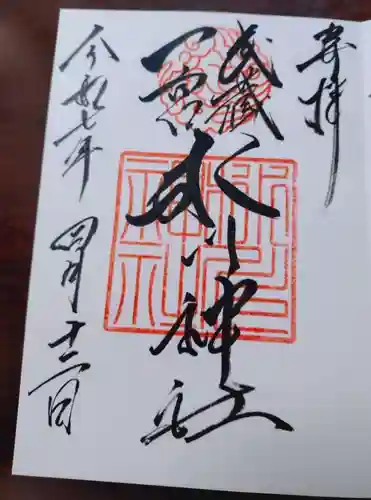 奉拝
武蔵
一宮
氷川神社
令和七年 四月十二日
氷川神社